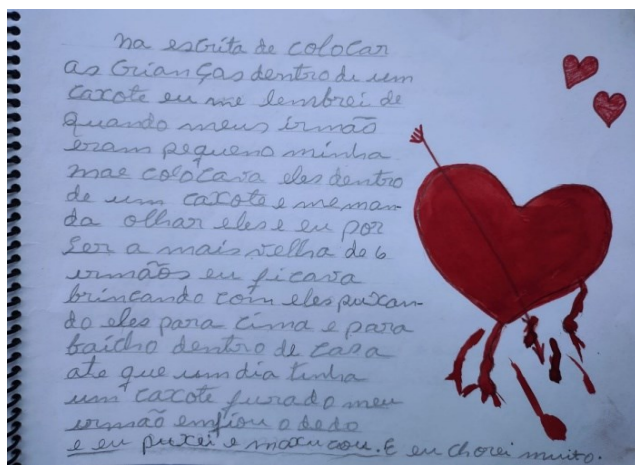 na escrita de colocar
as crianças dentro de um
caxote eu me lembrei de
quando meus irmão
eram pequeno minha
mae colocava eles dentro
de um caxote e me man-
da olhar eles e eu por
ser a mais velha de 6
irmãos eu ficava
brincando com eles puxan-
do eles para cima e para
baicho dentro de casa
ate que um dia tinha
um caxote furado meu
irmão enfiou o dedo
e eu puxei e maxucou. E eu chorei muito.